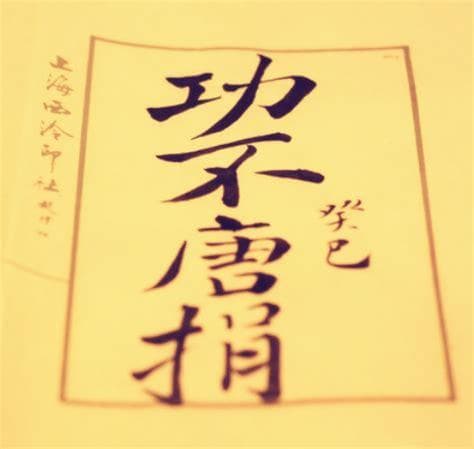 癸巳
功不唐捐
上海西泠印社